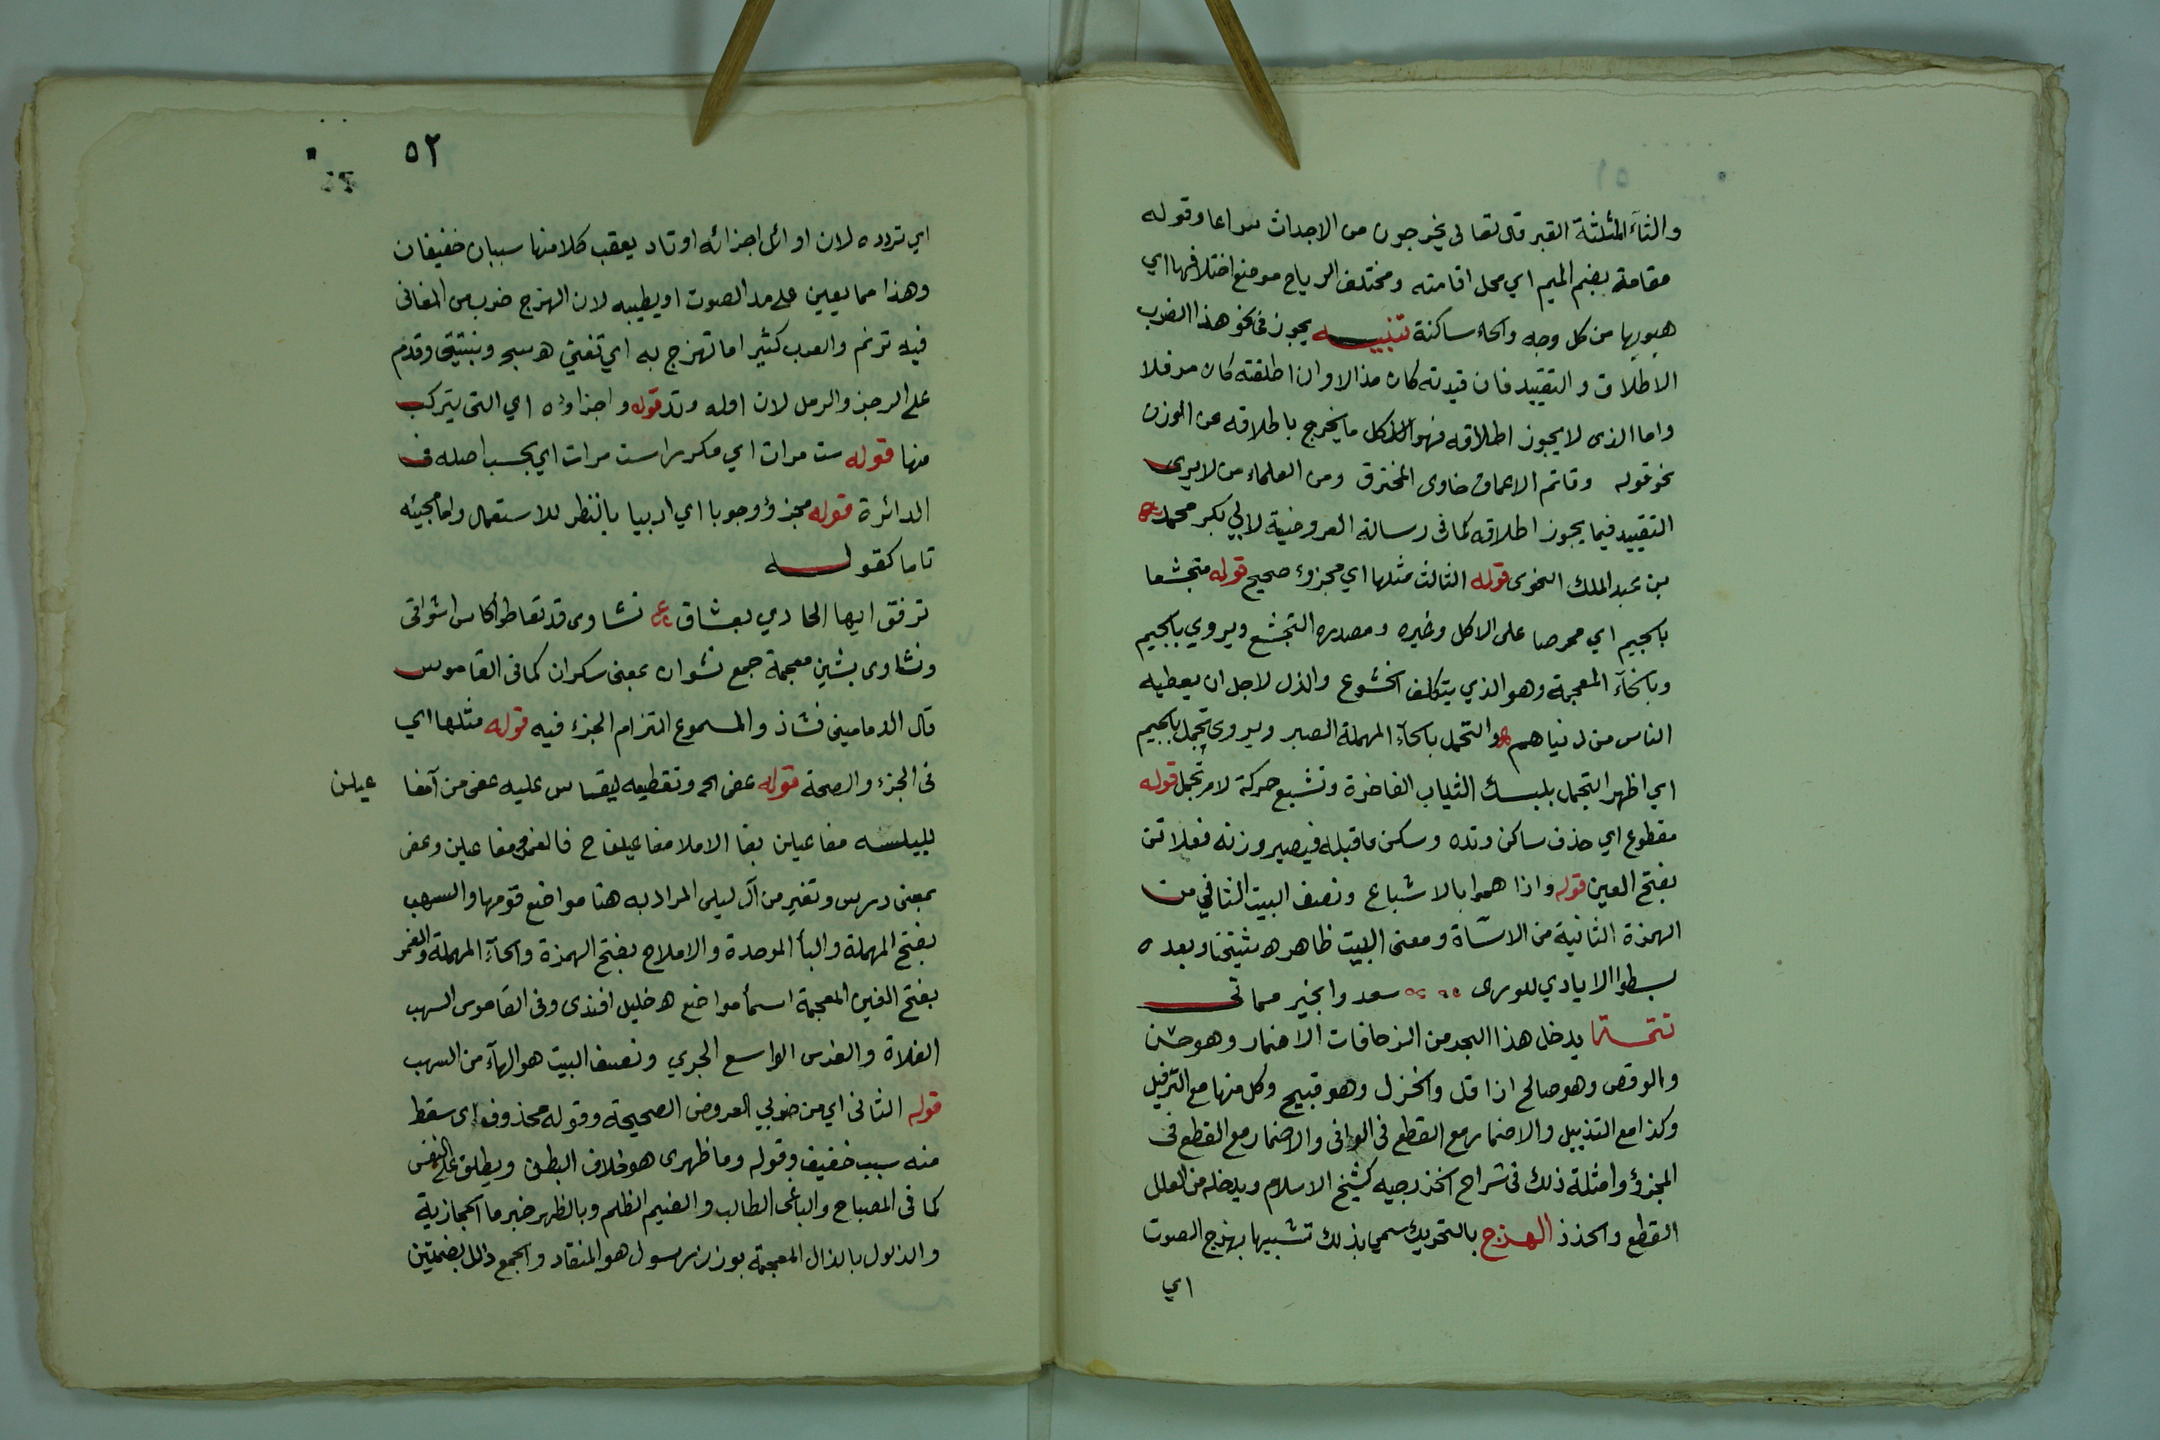 والثآء المثلثة القبر قال تعالى يخرجون من الاجداث سراعا وقوله
مقامة بضم الميم اي محل اقامته ومختلف الرياح موضع اختلافها اي
هبوبها من كل وجه والحاء ساكنة تنبيه يجوز في نحو هذا الضرب
الاطلاق والتقييد فان قيدته كان مذالا وان اطلقته كان مرفلا
واما الذى لا يجوز اطلاقه فهو كل ما يخرج باطلاقه عن الوزن
نحو قوله وقاتم الاعماق خاوى المخترق ومن العلماء من لا يرى
التقييد فيما يجوز اطلاقه كما في رسالة العروضية لابي بكر محمد
بن عبد الملك النحوى قوله الثالث مثلها اي مجزوء صحيح قوله متجشعا
بالجيم اي محرصا على الاكل وغيره ومصدره التجشع ويروي بالجيم
وبالخآء المعجمة وهو الذي يتكلف الخشوع والذل لاجل ان يعطيه
الناس من دنياهم والتحمل بالحآء المهملة الصبر ويروى تجمل بالجيم
اي اظهر التجمل بلبسك الثياب الفاخرة وتشبع حركة لام تجمل قوله
مقطوع اي حذف ساكن وتده وسكن ما قبله فيصير وزنه فعلاتن
بفتح العين قوله واذا همو بالاشباع ونصف البيت الثاني من
الهمزة الثانية من الاسآة ومعنى البيت ظاهر ه شيتخنا وبعده
بسطوا الايادي للورى سعد والخير مماتى
تتمة يدخل هذا البحر من الزحافات الاضمار وهو حسن
والوقص وهو صالح اذا قل والخزل وهو قبيح وكل منها مع الترفيل
وكذا مع التذييل والاضمار مع القطع في الوافى والاضمار مع القطع في
المجزؤ وامثلة ذلك في شراح الخزرجيه كشيخ الاسلام ويدخله من العلل
القطع والحذذ الهزج بالتحريك سمي بذلك تشبيها بهزج الصوت
اي
٥٢
اي تردده لان اوائل اجزائه اوتاد يعقب كلا منها سببان خفيفان
وهذا مما يعين على مد الصوت او يطيبه لان الهزج ضرب من المغانى
فيه ترنم والعرب كثيرا ما تهزج به اي تغنى وقدم
على الرجز والرمل لان اوله وتد قوله واجزاوه اي التى يتركب
منها قوله ست مرات اي مكررا ست مرات اي بحسب اصله في
الدائرة قوله مجزؤ وجوبا اي ادبيا بالنظر للاستعمال واما مجيئه
تاما كقوله
ترفق ايها الحادي بعشاق نشاوى قد تعاطوا كاس اشواقى
ونشاوى بشين معجمة جمع نشوان بمعنى سكران كما في القاموس
قال الدمامينى فشاذ والمسموع التزام الجزء فيه قوله مثلها اي
في الجزء والصحة قوله عفى الخ وتقطيعه ليقاس عليه عفى من آمفا
عيلن
لليلسه مفاعيلن بفا الاملا مفاعيلن فالغمرو مفاعيلن وعفى
بمعنى درس وتغير من آل ليلى المراد به هنا مواضع قومها والسهب
بفتح المهملة والبأ الموحدة والاملاح بفتح الهمزة والحآء المهملة والغمر
بفتح الغين المعجمة اسمأ مواضع ه خليل افندى وفى القاموس السهب
الفلاة والفرس الواسع الجري ونصف البيت هو الهآء من السهب
قوله الثانى اي من ضربي العروض الصحيحة وقوله محذوف اى سقط
منه سبب خفيف وقوله وما ظهرى هو خلاف البطن ويطلق على النفس
كما في المصباح والباغى الطالب والضيم الظلم وبالظهر خبر ما الحجازية
والذلول بالذال المعجمة بوزن رسول هو المنقاد والجمع ذلل بضمتين